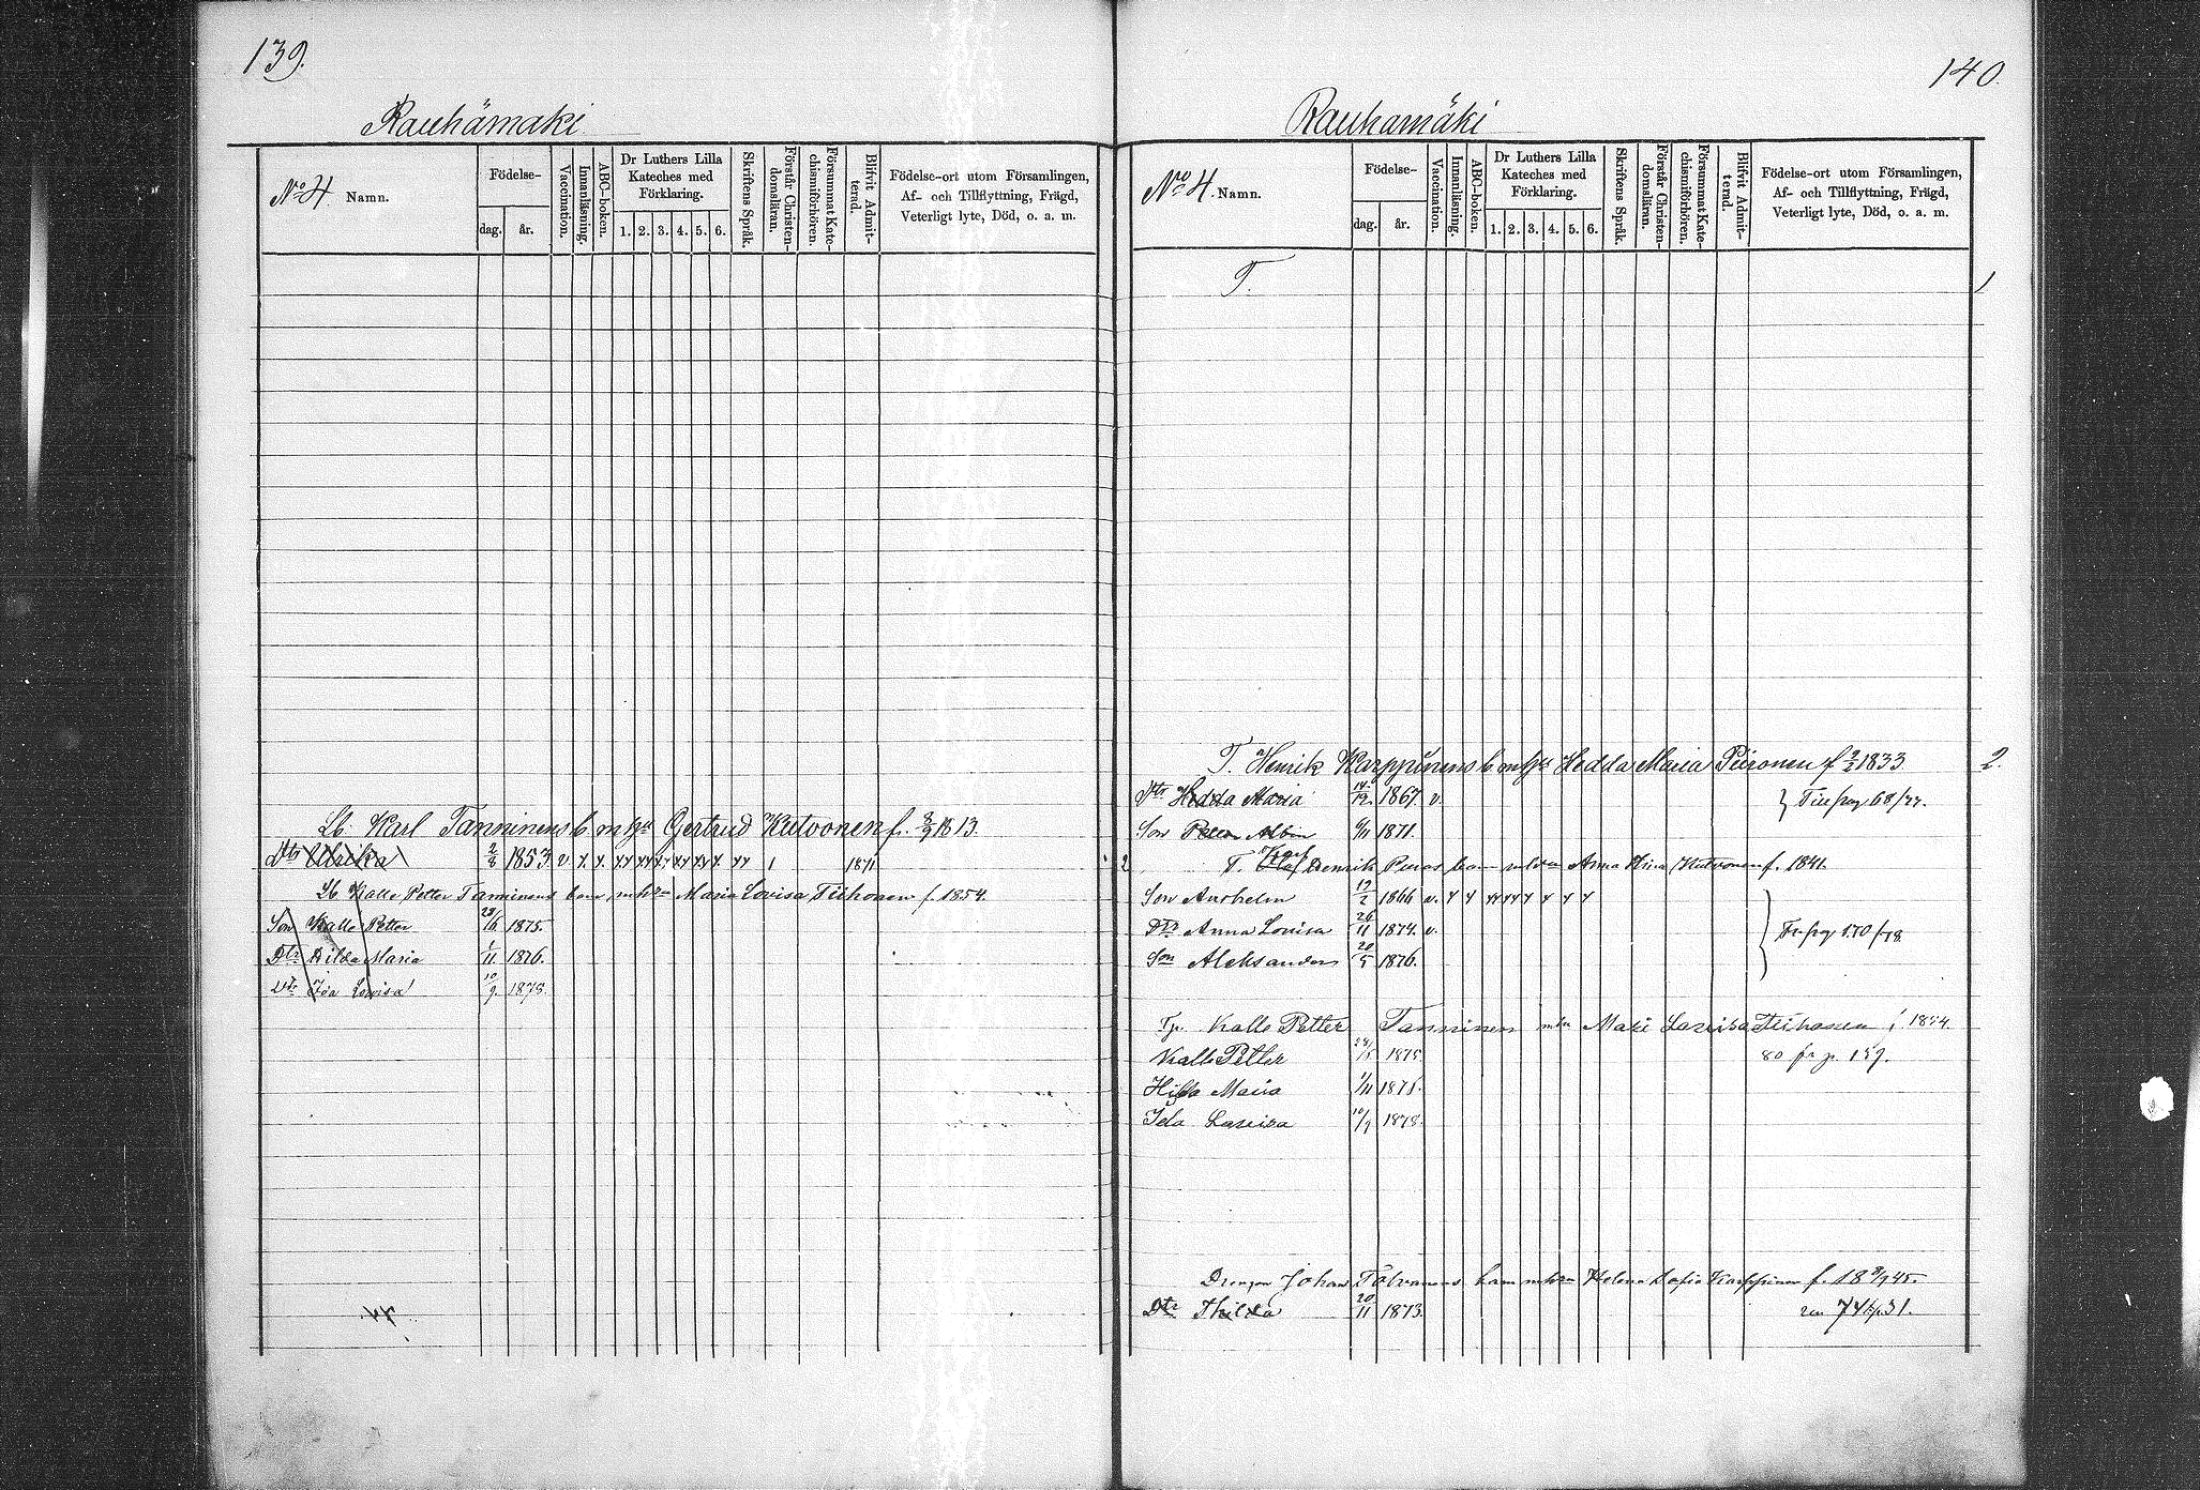 139.
Rauhämaki
No 4 Namn.
Födelse-
dag. år.
Vaccination.
Innanläsning.
ABC-boken.
Dr Luthers Lilla
Kateches med
Förklaring.
1. 2. 3. 4. 5. 6.
Skriftens Språk.
Förstår Christen-
domsläran.
Försummat Kate-
chismiförhören.
Blifvit Admit-
terad.
Födelse-ort utom Församlingen,
Af- och Tillflyttning, Frägd,
Veterligt lyte, Död, o. a. m.
Lb. Karl Tanninens b. m hu Gertrud Kutvonen f. 8/9 1813.
Dtr Ulrika 2/8 1853 v. 1871
Lb Kalle Petter Tanninens barn, m hu Maria Lovisa Tiihonen f. 1854.
Son Kalle Petter 1875.
Dtr Hilda Maria 1/11 1876.
Dtr Ida Lovisa 10/9. 1878.
140.
Rauhamäki
No 4. Namn.
Födelse-
dag. år.
Vaccination.
Innanläsning.
ABC-boken.
Dr Luthers Lilla
Kateches med
Förklaring.
1. 2. 3. 4. 5. 6.
Skriftens Språk.
Förstår Christen-
domsläran.
Försummat Kate-
chismiförhören.
Blifvit Admit-
terad.
Födelse-ort utom Församlingen,
Af- och Tillflyttning, Frägd,
Veterligt lyte, Död, o. a. m.
T. 1
T. Henrik Karppinens b. m hu Hedda Maria Piironen f 2/2 1833 2.
Dtr Hedda Maria 14/12. 1867. v. } Till pag 68/77.
Son Petter Albin 6/11 1871.
2 T. Olof Henrik Puras barn m hu Anna Stina Kutvonen f. 1841.
Son Anshelm 12/2 1866 v.
Dtr Anna Lovisa 26/11 1874. v. } Fr pag 170/78.
Son Aleksander 20/5 1876.
Kalle Petter Tanninen m hu Mari Lovisa Tiihonen f. 1854.
Kalle Petter 1875. 80 fr p. 159.
Hilda Maria 1/11 1876.
Ida Lovisa 10/9 1878.
Drengen Johan Tolvanens barn m hu Helena Sofia Karppinen f. 18 8/9 45.
Dtr Thilda 20/11 1873.